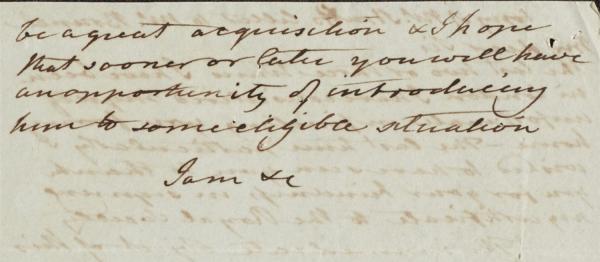 be a great acquisition & I hope
that sooner or later you will have
an opportunity of introducing
him to some eligible situation
I am &c